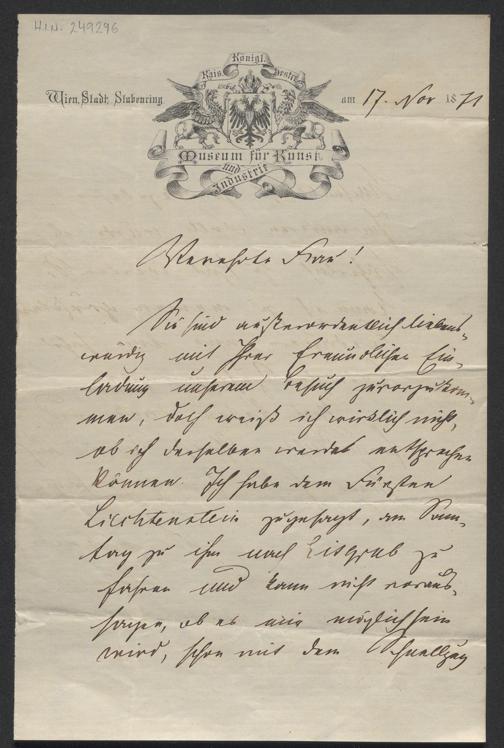 H.I.N. 249296
Königl.
Kais. Oesterr.
Wien, Stadt, Stubenring am 17. Nov 1871
Museum für Kunst
und
Industrie
Verehrte Frau!
Sie sind außerordentlich liebens-
würdig mit Ihrer freundlichen Ein-
ladung unserem Besuch zuvorzukom-
men, doch weiß ich wirklich nicht,
ob ich derselben werde entsprechen
können. Ich habe dem Fürsten
Liechtenstein zugesagt, am Sonn-
tag zu ihm nach Eisgrub zu
fahren und kann nicht voraus-
sagen, ob es mir möglich sein
wird, schon mit dem Schnellzug